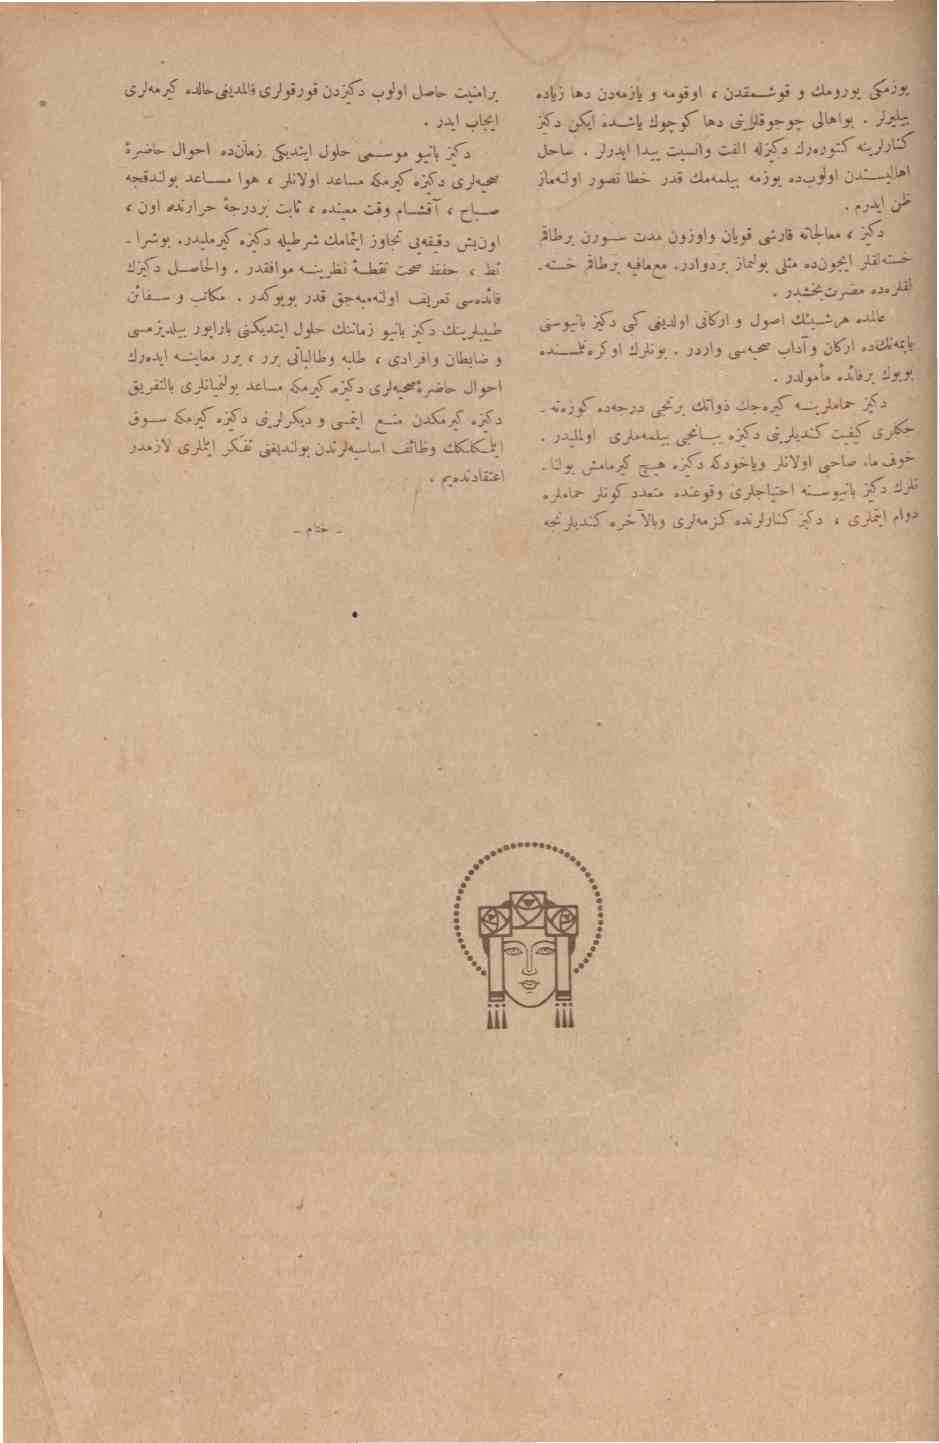 يوزمكی يورومك و قوشمقدن ، اوقومه و يازمه‌دن دها زياده
بيليرلر . بواهالی چوجوقلرينی دها كوچوك ياشده ايكن دكز
كنارلرينه كتوره‌رك دكزله الفت وانسيت پيدا ايدرلر . ساحل
اهاليسندن اولوب‌ده يوزمه بيلمه‌مك قدر خطا تصور اولنه‌ماز
ظن ايدرم .
دكز ، معالجاته قارشی قويان واوزون مدت سورن برطاقم
خسته‌لقلر ايچون‌ده مثلی بولنماز بردوادر. مع‌مافيه برطاقم خسته‌ـ
لقلره‌ده مضرت‌بخشدر .
عالمده هرشيئك اصول و اركانی اولديغی كبی دكز بانيوسنی
ياپمه‌نك‌ده اركان وآداب صحيه‌سی واردر . بونلرك اوكره‌نلمسنده
بويوك برفائده مأمولدر .
دكز حماملرينه كيره‌جك ذواتك برنجی درجه‌ده كوزه‌ته‌ـ
جكلری كيفيت كنديلرينی دكزه يبانجی بيلمه‌ملری اولمليدر .
خوف ما، صاحبی اولانلر وياخودكه دكزه هيچ كيرمامش بولناـ
نلرك دكز بانيوسنه احتياجلری وقوعنده متعدد كونلر حماملره
دوام ايتملری ، دكز كنارلرنده كزمه‌لری وبالآخره كنديلرنجه
برامنيت حاصل اولوب دكزدن قورقولری قالمديغی حالده كيرمه‌لری
ايجاب ايدر .
دكز بانيو موسمی حلول ايتديكی زمان‌ده احوال حاضرۀ
صحيه‌لری دكزه كيرمكه مساعد اولانلر ، هوا مساعد بولندقجه
صباح ، آقشام وقت معينده ، ثابت بردرجۀ حرارتده اون ،
اون‌بش دقيقه‌یی تجاوز ايتمامك شرطيله دكزه كيرمليدر. بوشراـ
ئط ، حفظ صحت نقطۀ نظرينه موافقدر . والحاصل دكزك
فائده‌سی تعريف اولنه‌ميه‌جق قدر بويوكدر . مكاتب و سفائن
طبيبلرينك دكز بانيو زماننك حلول ايتديكنی بارايور بيلديرمسی
و ضابطان وافرادی ، طلبه وطالباتی برر ، برر معاينه ايده‌رك
احوال حاضرۀ صحيه‌لری دكزه كيرمكه مساعد بولنميانلری بالتفريق
دكزه كيرمكدن منع ايتمسی و ديكرلرينی دكزه كيرمكه سوق
ايتملكلكك وظائف اساسيه‌لرندن بولنديغنی تفكر ايتملری لازمدر
اعتقادنده‌يم .
ـ ختام ـ